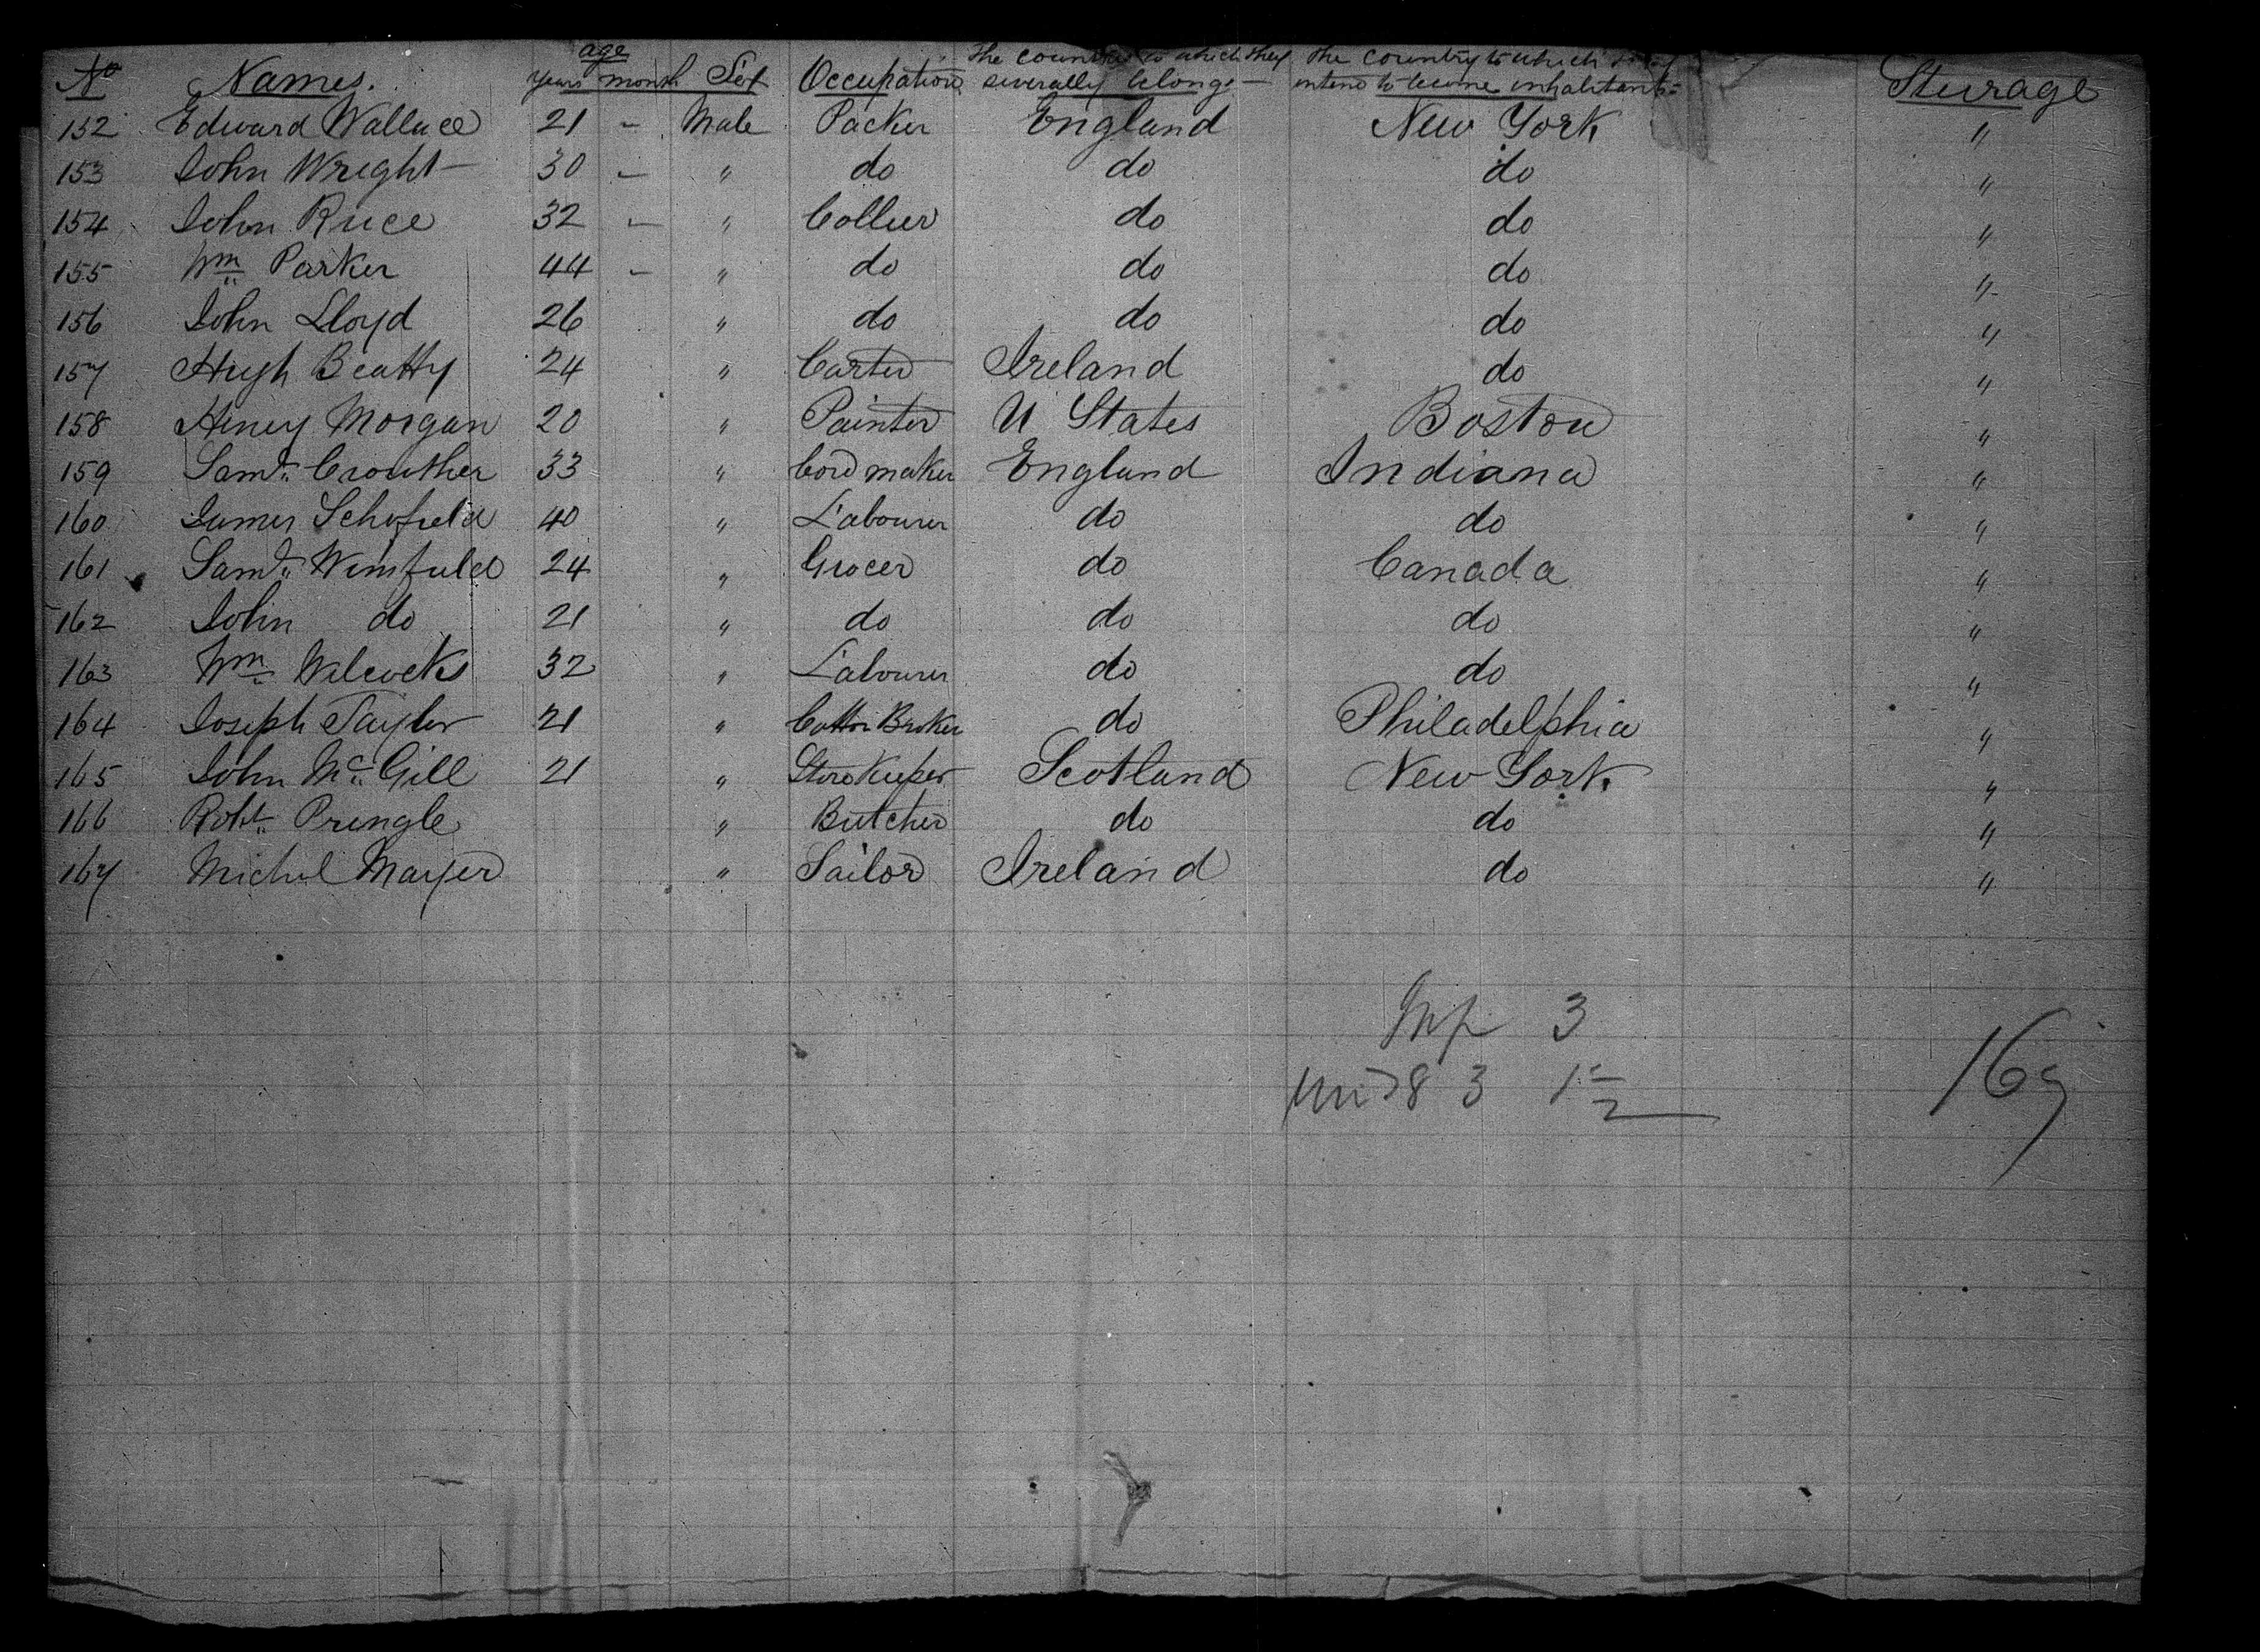 No Names. age years month Sex Occupation The countries to which they severally belong - The country to which they intend to become inhabitants = Steerage
152 Edward Wallace 21 - Male Packer England New York "
153 John Wright 30 - " do do do "
154 John Ruce 32 - " Collier do do "
155 Wm Parker 44 - " do do do "
156 John Lloyd 26 " do do do "
157 Hugh Beatty 24 " Carter Ireland do "
158 Henry Morgan 20 " Painter U States Boston "
159 Saml. Crowther 33 " Cord maker England Indiana "
160 James Schofield 40 " Labourer do do "
161 Saml. Winsfield 24 " Grocer do Canada "
162 John do 21 " do do do "
163 Wm Wilcocks 32 " Labourer do do "
164 Joseph Taylor 21 " Cotton Broker do Philadelphia "
165 John Mc Gill 21 " Store Keeper Scotland New York "
166 Robt. Pringle " Butcher do do "
167 Michel Mayer " Sailor Ireland do "
3
3 1
2